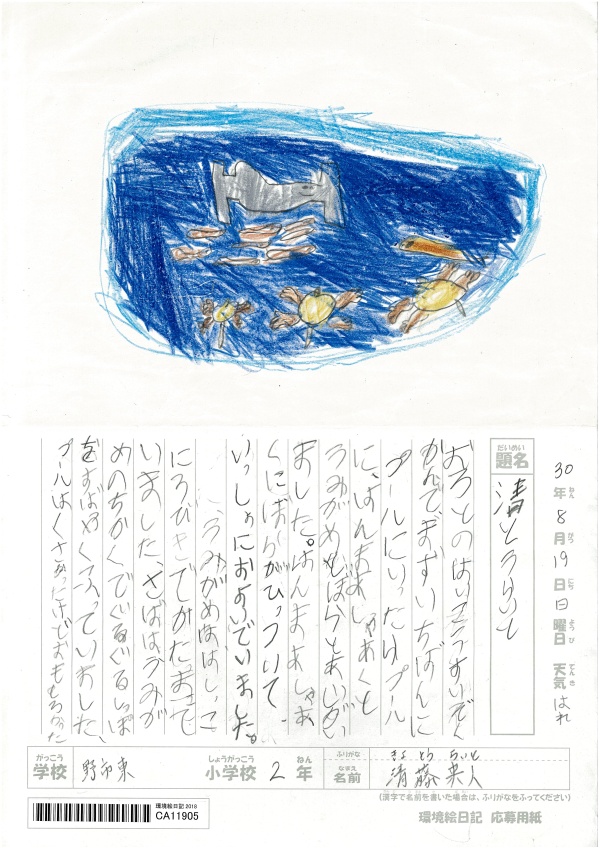 30年8月19日日曜日 天気 はれ
ねん がつ にち ようび てんき
だいめい
題名
清とうらいと
むろとのはいこうすいぞく
かんで、まずいちばんに
プールにいったらプール
に、はんまあしゃあくと
うみがめとぼらと
ました。はんまあしゃあ
くにぼらがひっついて、
いっしょにおよいでいました。
うみがめははしっこ
にろぴきでかたまって
いました、さばはうみが
めのちかくでぐるぐるしっぽ
をすばやくふっていました、
プールはくさかったけどおもしろかった
がっこう しょうがっこう ねん ふりがな きよ とう らいと
学校 野市東 小学校 2年 なまえ 名前 清藤来人
(漢字で名前を書いた場合は、ふりがなをふってください)
環境絵日記2018
CA11905
環境絵日記 応募用紙